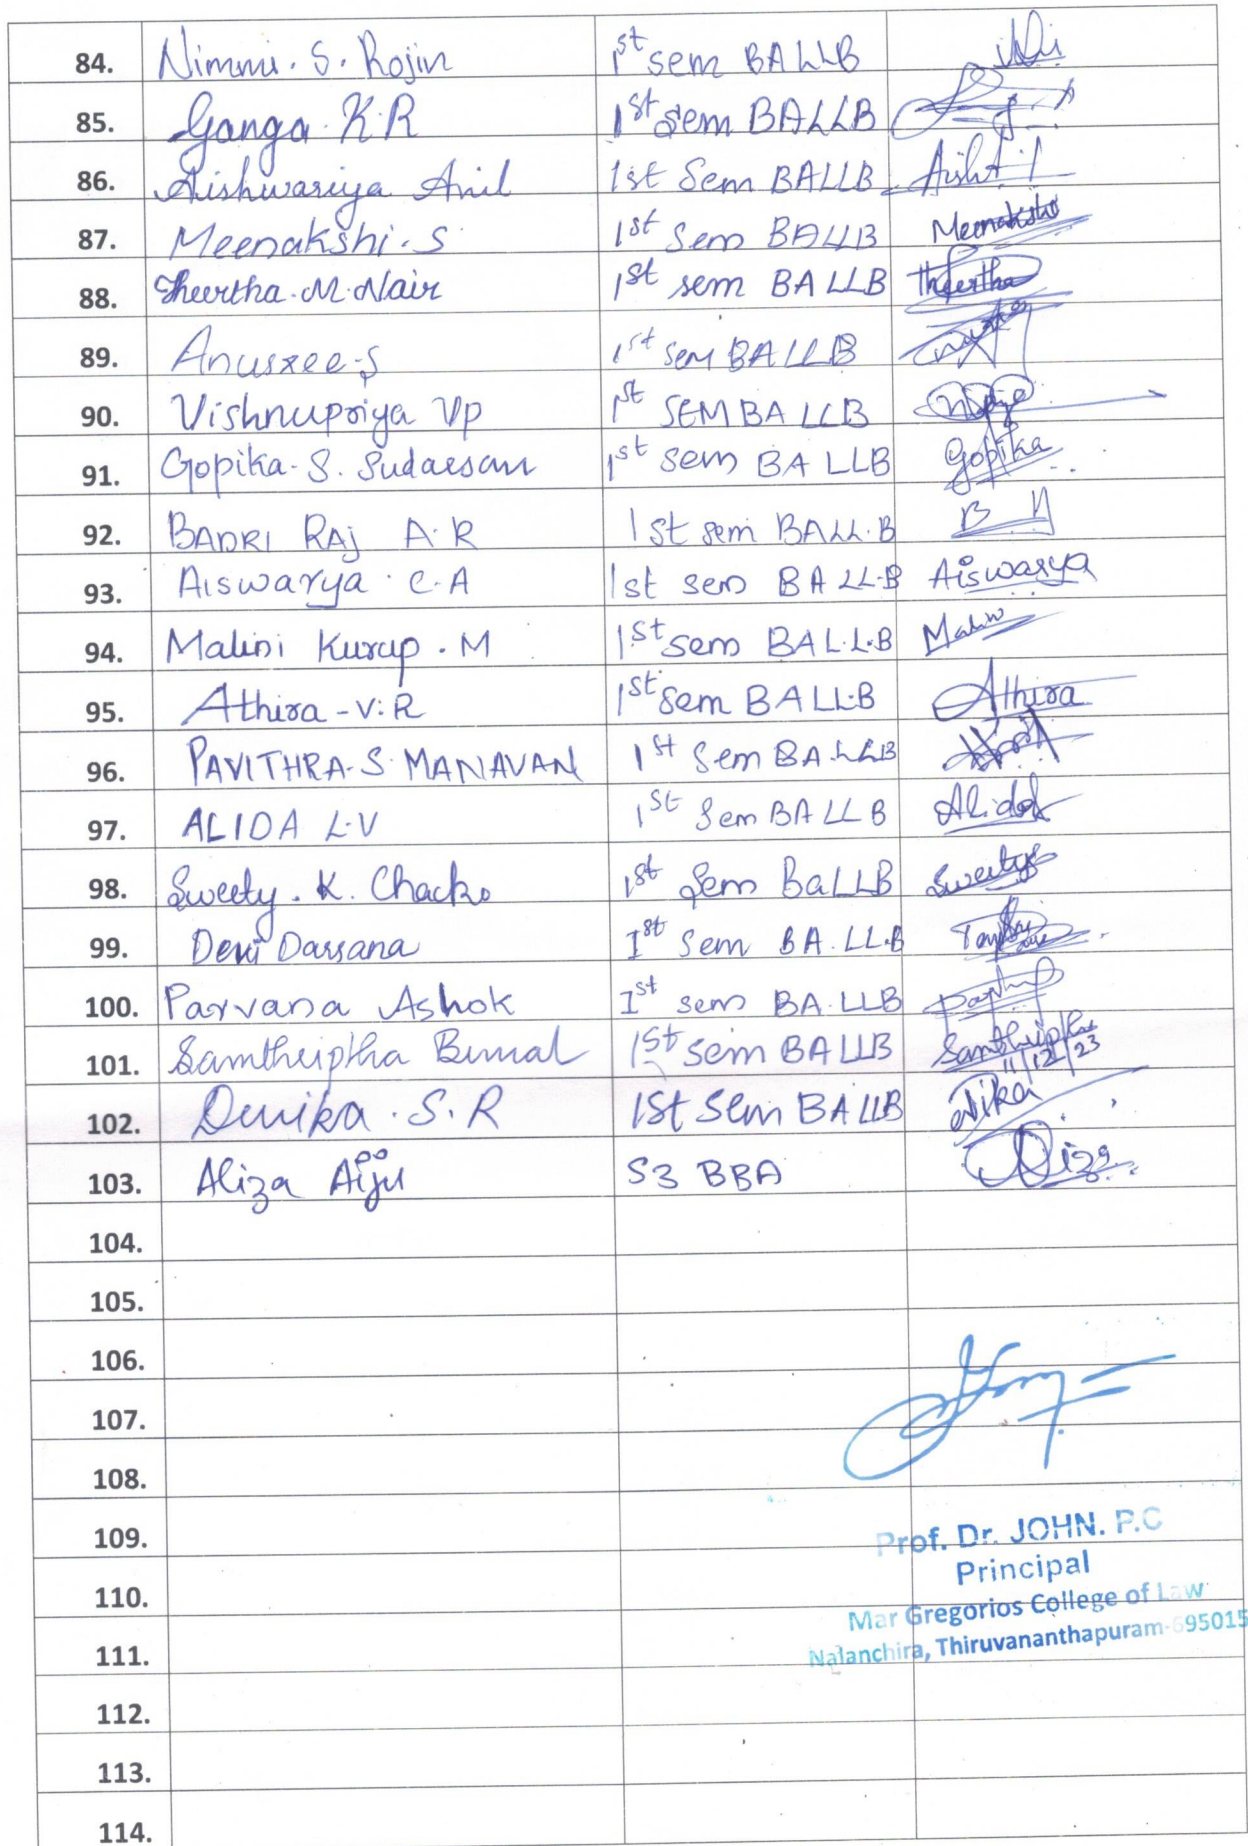 84. Nimmi. S. Rojin 1st sem BALLB
85. Ganga K.R 1st Sem BALLB
86. Aishwariya Anil 1st Sem BALLB
87. Meenakshi. S 1st Sem BALLB Meenakshi
88. Theertha. M. Nair 1st sem BA LLB Theertha
89. Anusree. S 1st sem BA LLB
90. Vishnupriya VP 1st SEM BA LLB
91. Gopika. S. Sudarsan 1st sem BA LLB Gopika
92. BADRI RAJ A.R 1st sem BALL.B B
93. Aiswarya C.A 1st sem BA LL.B Aiswarya
94. Malini Kurup. M 1st sem BAL.L.B Malini
95. Athira - V. R 1st sem BALL.B Athira
96. PAVITHRA. S. MANAVAN 1st Sem BA.LLB
97. ALIDA L.V 1st Sem BA LLB Alida
98. Sweety. K. Chacko 1st Sem BaLLB Sweety
99. Devi Darsana Ist Sem BA. LL.B
100. Parvana Ashok Ist sem BA. LLB
101. Samthriptha Bimal 1st sem BA LLB Samthriptha
11/12/23
102. Devika. S. R 1st sem BA LLB
103. Aliza Aiju S3 BBA Aliza
104.
105.
106.
107.
108.
109.
Prof. Dr. JOHN. P.C
Principal
110.
Mar Gregorios College of Law
111.
Nalanchira, Thiruvananthapuram-695015
112.
113.
114.